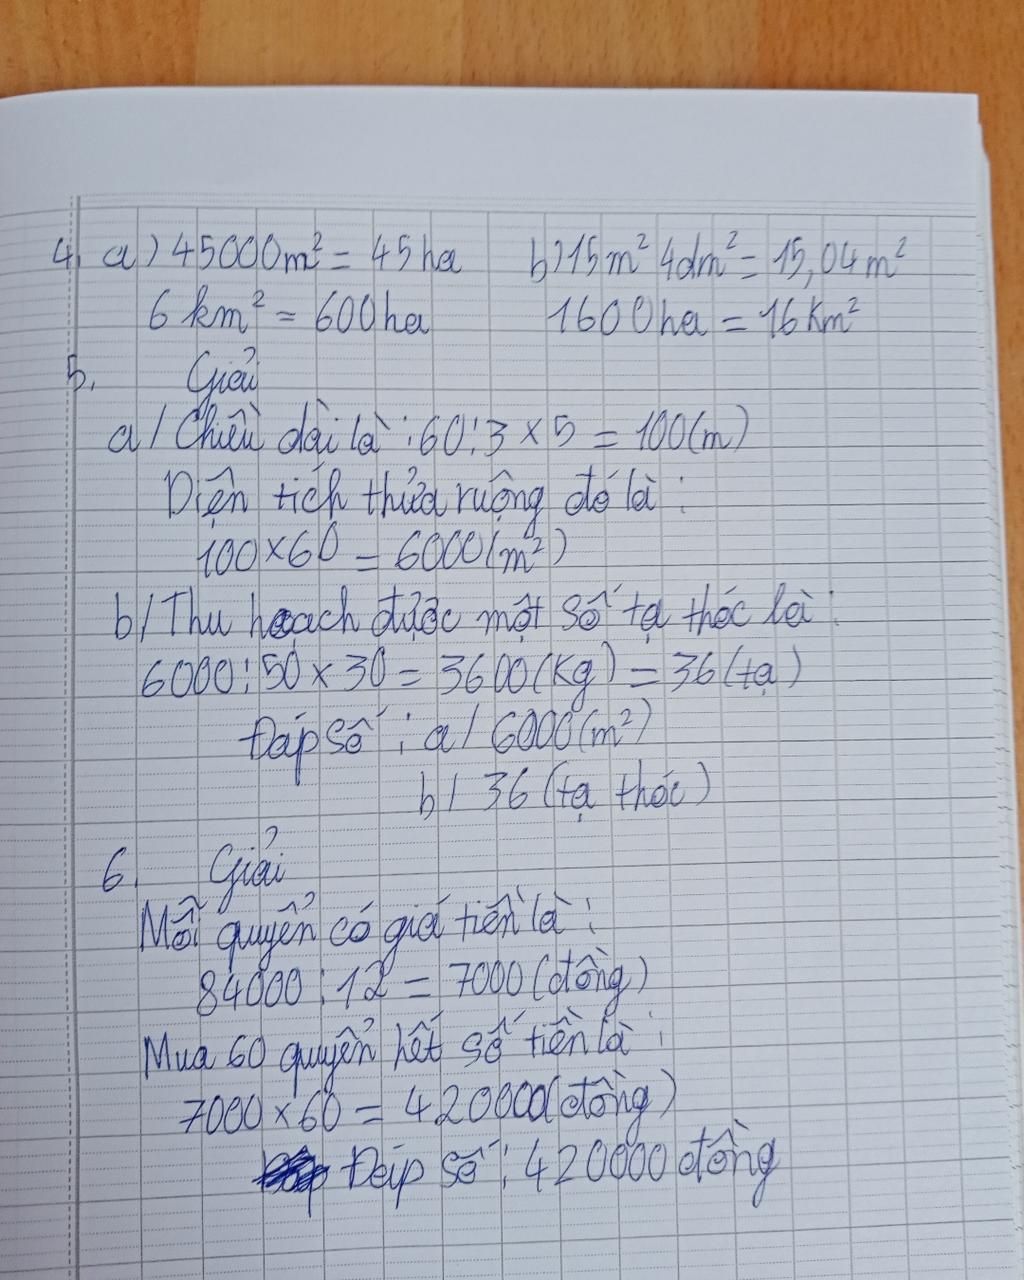 4, a) 45000m² = 45ha b) 15m² 4dm² = 15,04m²
6 km² = 600ha 1600ha = 16Km²
5, Giải
a/ Chiều dài là : 60 : 3 x 5 = 100(m)
Diện tích thửa ruộng đó là :
100 x 60 = 6000(m²)
b/ Thu hoạch được một số tạ thóc là :
6000 : 50 x 30 = 3600(Kg) = 36(tạ)
Đáp số : a/ 6000(m²)
b/ 36 (tạ thóc)
6, Giải
Mỗi quyển có giá tiền là :
84000 : 12 = 7000 (đồng)
Mua 60 quyển hết số tiền là :
7000 x 60 = 420000(đồng)
Đáp số : 420000 đồng